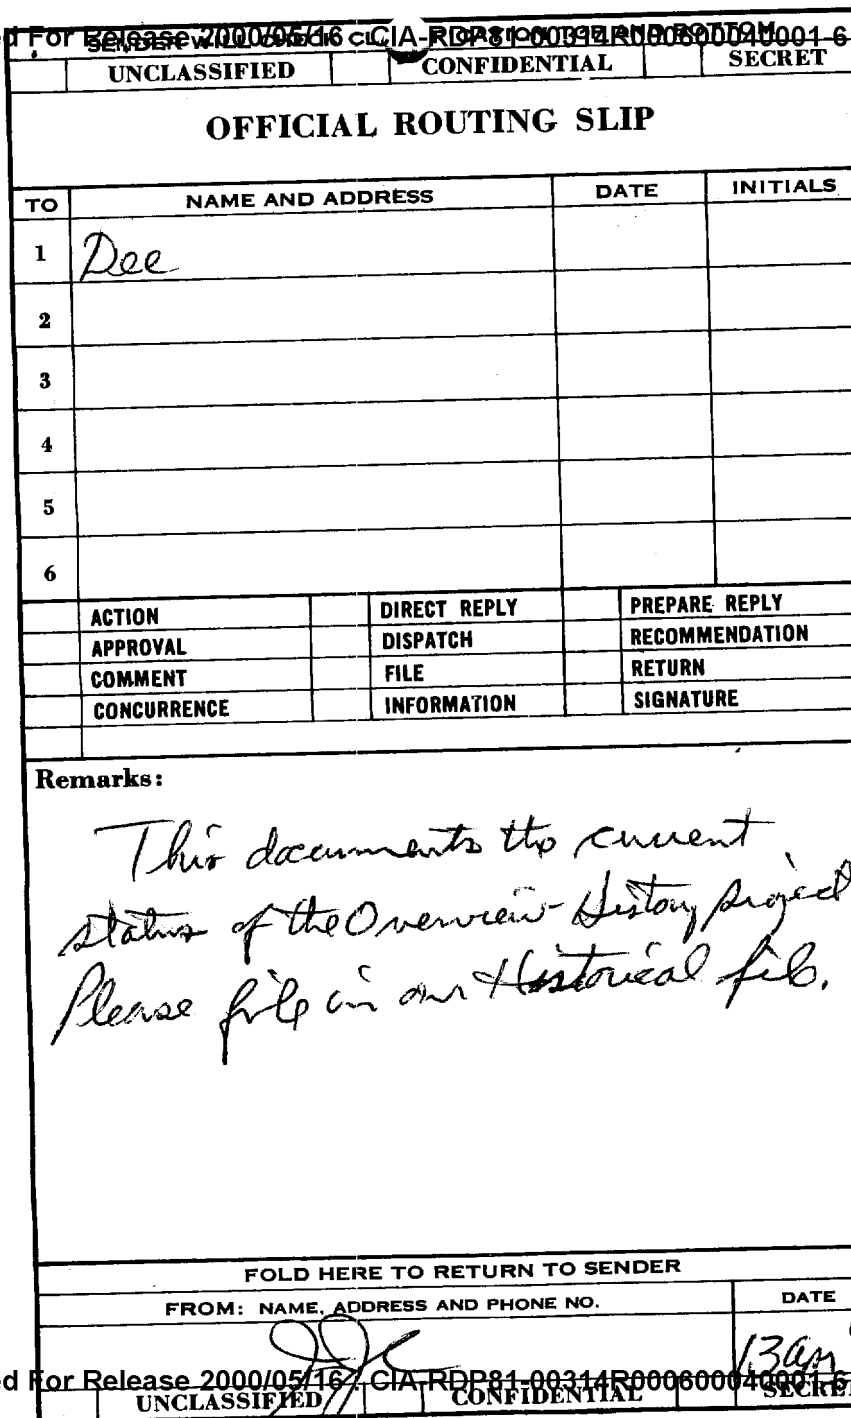 d For Release 2000/05/16 : CIA-RDP81-00314R000600040001-6
SENDER WILL CHECK CL ICATION TOP AND BOTTOM
UNCLASSIFIED CONFIDENTIAL SECRET
OFFICIAL ROUTING SLIP
TO NAME AND ADDRESS DATE INITIALS
1 Dee
2
3
4
5
6
ACTION DIRECT REPLY PREPARE REPLY
APPROVAL DISPATCH RECOMMENDATION
COMMENT FILE RETURN
CONCURRENCE INFORMATION SIGNATURE
Remarks:
This documents the current
status of the Overview History project
Please file in our Historical file.
FOLD HERE TO RETURN TO SENDER
FROM: NAME, ADDRESS AND PHONE NO. DATE
d For Release 2000/05/16 : CIA-RDP81-00314R000600040001-6
UNCLASSIFIED CONFIDENTIAL SECRE